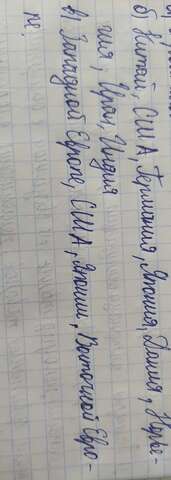 б) Китай, США, Германия, Япония, Дания, Норве-
гия, Иран, Индия
в) Западной Европе, США, Японии, Восточной Евро-
пе.